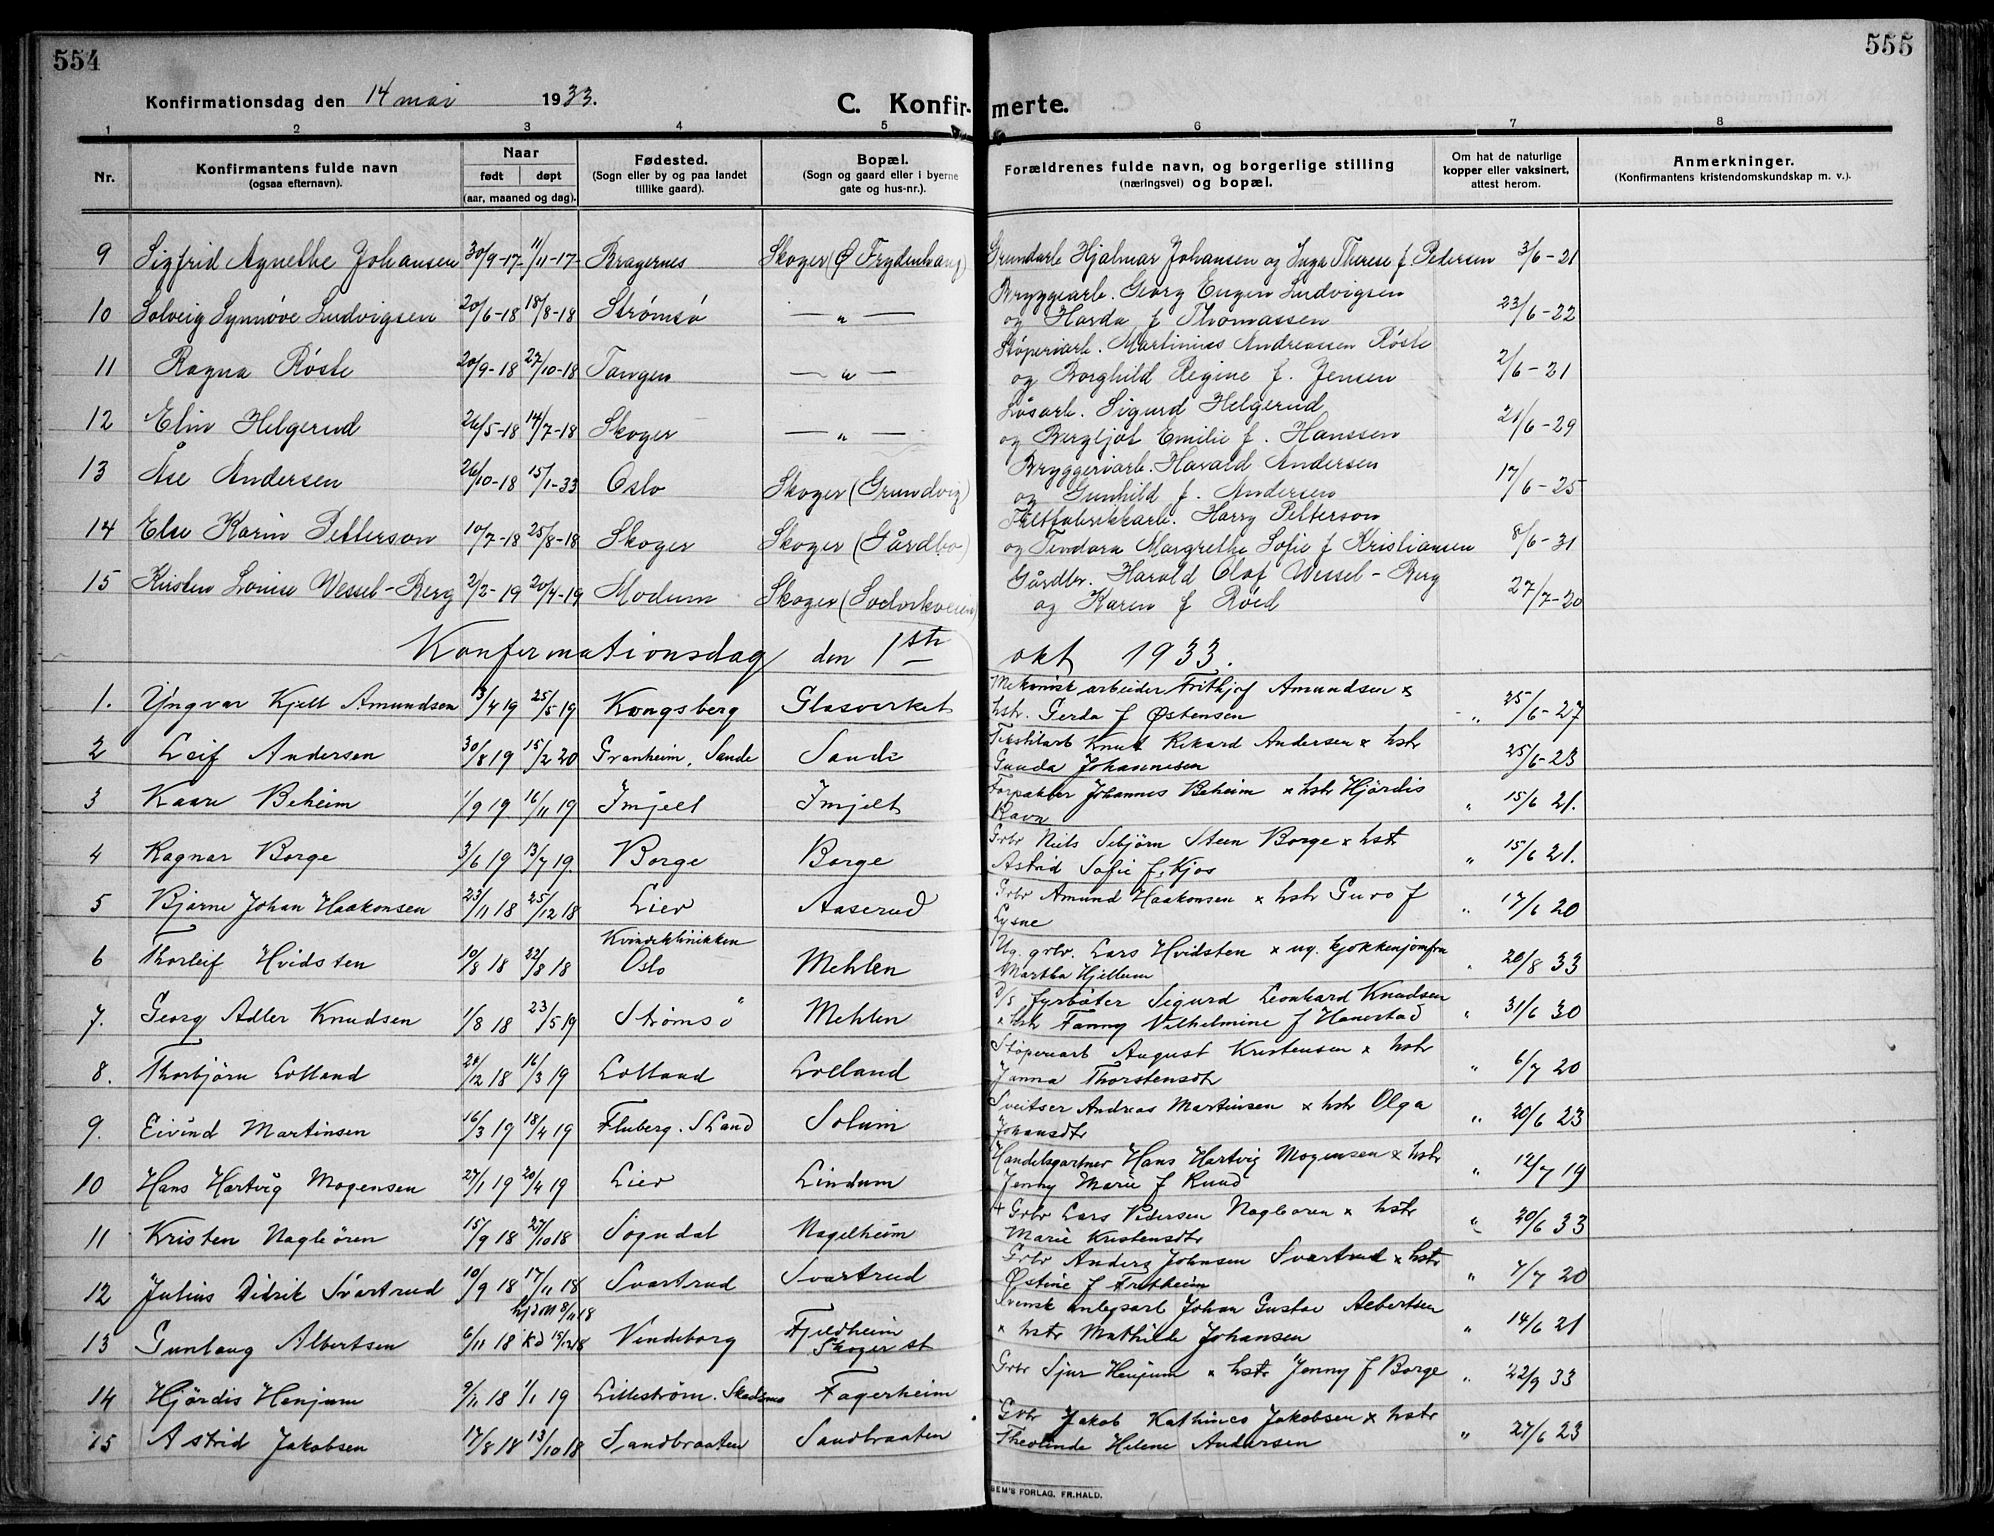 554
555
Konfirmationsdag den 14 mai 1933.
C. Konfirmerte.
1 2 3 4 5 6 7 8
Nr.
Konfirmantens fulde navn
(ogsaa efternavn).
Naar
født døpt
(aar, maaned og dag).
Fødested.
(Sogn eller by og paa landet
tillike gaard).
Bopæl.
(Sogn og gaard eller i byerne
gate og hus-nr.).
Forældrenes fulde navn, og borgerlige stilling
(næringsvei) og bopæl.
Om hat de naturlige
kopper eller vaksinert,
attest herom.
Anmerkninger.
(Konfirmantens kristendomskundskap m. v.).
9 Sigfrid Agnethe Johansen 30/9-17 11/11-17 Bragernes Skoger (Ø Frydenhaug) Grundarb Hjalmar Johansen og Inga Therese f. Pedersen 3/6-21
10 Solveig Synnøve Ludvigsen 20/6-18 18/8-18 Strømsø — „ — Bryggearb. Georg Eugen Ludvigsen
og Harda f Thomassen 23/6-22
11 Ragna Røste 20/9-18 27/10-18 Tangen — „ — Støperiarb. Martinius Andreassen Røste
og Borghild Regine f. Jensen 2/6-21
12 Elin Helgerud 26/5-18 14/7-18 Skoger — „ — Løsarb. Sigurd Helgerud
og Bergljot Emilie f. Hanssen 21/6-29
13 Åse Andersen 26/10-18 15/1-33 Oslo Skoger (Grundvig) Bryggeriarb. Harald Andersen
og Gunhild f. Andersen 17/6-25
14 Else Karin Petterson 10/7-18 25/8-18 Skoger Skoger (Gårdbo) Harry Petterson
og Margrethe Sofie f Kristiansen 8/6-31
15 Kirsten Louise Wessel-Berg 2/2-19 20/4-19 Modum Skoger Gårdbr. Harald Olaf Wessel-Berg
og Karen f Røed 27/7-20
Konfirmationsdag den 1ste okt 1933.
1. Yngvar Kjell Amundsen 13/4 19 25/5 19 Kongsberg Glasverket Mekanisk arbeider Frithjof Amundsen x
hstr. Gerda f Østensen „ 25/6-27
2 Leif Andersen 30/8 19 15/2 20 Granheim, Sande Sande Tekstilarb Knut Rikard Andersen x hstr
Gunda Johannesen 25/6-23
3 Kaare Beheim 1/9 19. 16/11 19 Imjelt Imjelt Forpakter Johannes Beheim x hstr Hjørdis
Ravn „ 15/6 21.
4 Ragnar Borge 3/6 19 13/7 19. Borge Borge Grbr Niels Sebjørn Steen Borge x hstr
Astrid Sofie f. Kjos „ 15/6 21.
5 Bjarne Johan Haakonsen 23/11 18 25/12 18 Lier Aaserud Grbr Amund Haakonsen x hstr Guro f
Lysne „ 17/6 20
6 Thorleif Hvidsten 10/8 18 22/8 18 Kvindeklinikken
Oslo Mehlen Ug. grbr. Lars Hvidsten x ug. kjøkkenjomfru
Martha Hjellum „ 20/8 33
7. Georg Adler Knudsen 1/8 18 23/5 19 Strømsö Mehlen D/S fyrbøter Sigurd Leonhard Knudsen
x hstr Fanny Vilhelmine f Hanestad „ 31/6 30
8. Thorbjørn Lolland 24/12 18 16/3 19 Lolland Lolland Støperiarb August Kristensen x hstr
Janna Thorstensdtr „ 6/7 20
9. Eivind Martinsen 16/3 19 18/4 19 Fluberg. S Land Solum Sveitser Andreas Martinsen x hstr Olga
Johansdtr „ 20/6 23
10 Hans Hartvig Mogensen 27/1 19 20/4 19 Lier Lindum Handelsgartner Hans Hartvig Mogensen x hstr
Jenny Marie f Ruud „ 12/7 19
11 Kristen Nagleören 15/9 18 27/10 18 Sogndal Nagelheim + Grbr Lars Pedersen Nagløren x hstr
Marie Kristensdtr „ 20/6 33
12 Julius Didrik Svartrud 10/9 18 17/11 18 Svartrud Svartrud Grbr Anders Johnsen Svartrud x hstr
Østine f Fretheim „ 7/7 20
13 Gunlaug Albertsen 6/11 18 hjdm 8/11 18
kd 15/12 18 Vindeborg Fjeldheim
Skoger st Svensk anlegsarb Johan Gustav Albertsen
x hstr Mathilde Johansen „ 14/6 21
14 Hjørdis Henjum 9/11 18 1/1 19 Lilleström. Skedsmo Fagerheim Grbr Sjur Henjum x hstr Jenny f Borge „ 22/9 33
15 Astrid Jakobsen 17/8 18 13/10 18 Sandbraaten Sandbraaten Grbr Jakob Kathinus Jakobsen x hstr
Theolinde Helene Andersen „ 27/6 23
SEM'S FORLAG, FR.HALD.